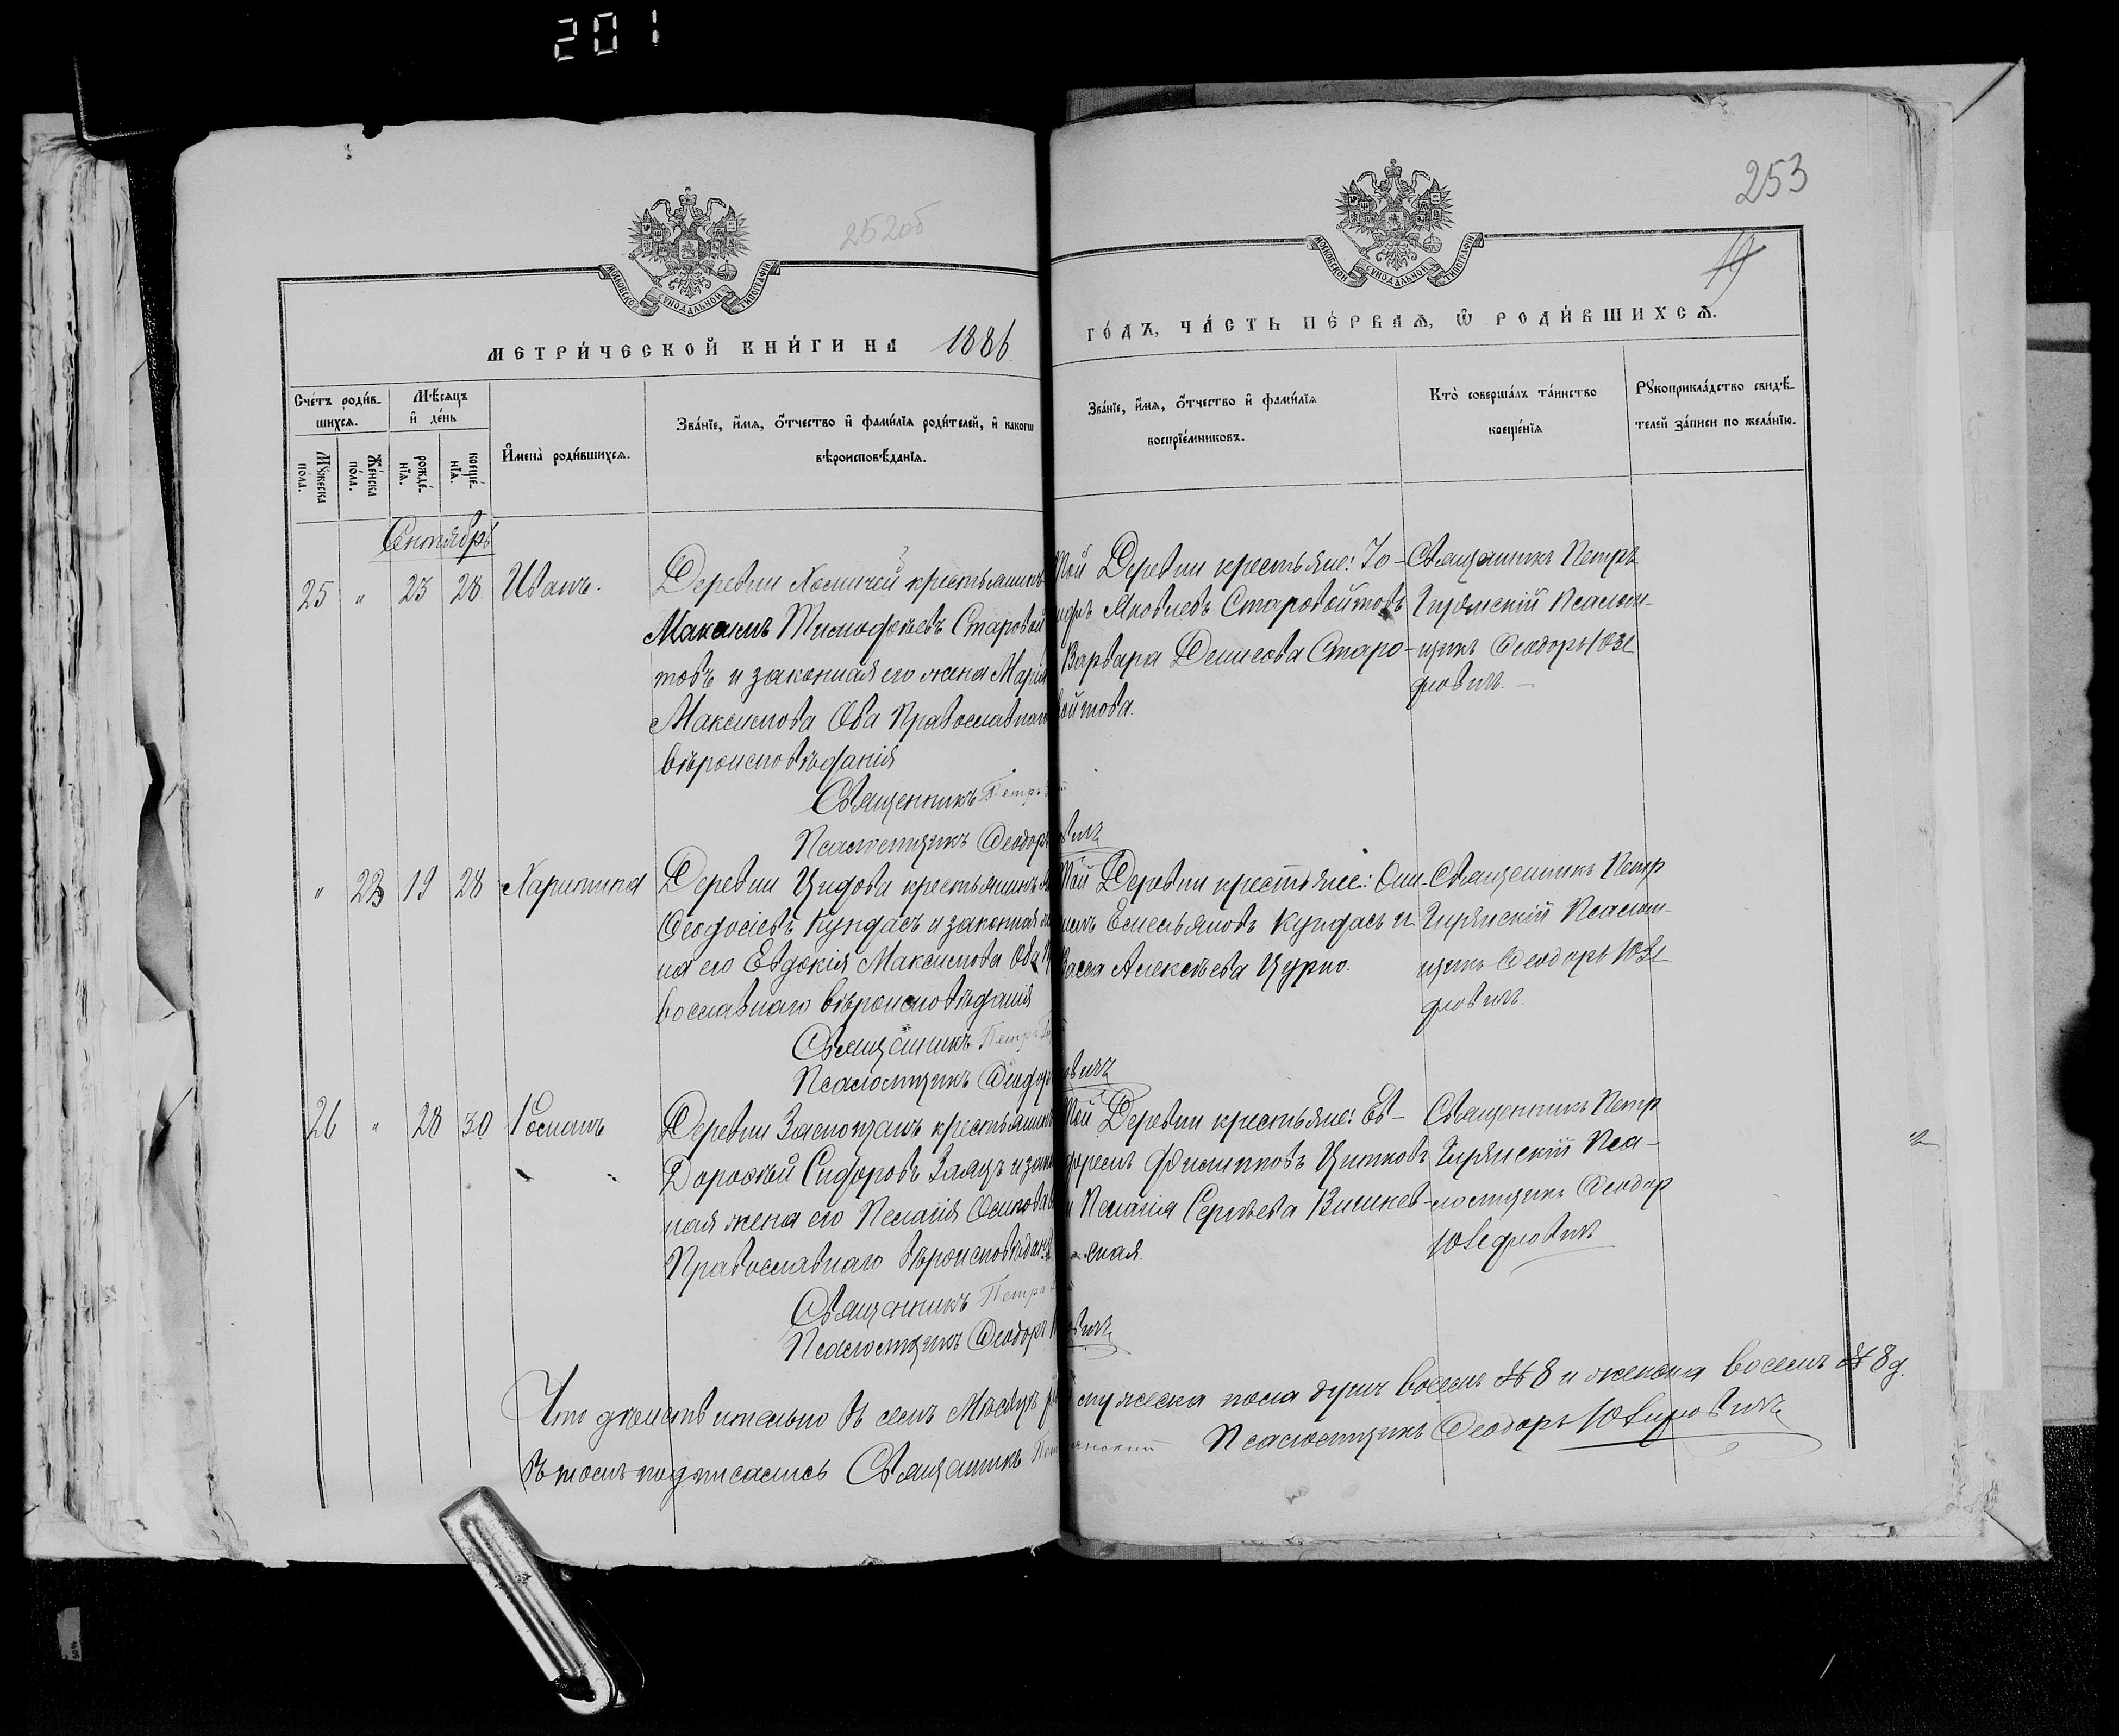 201
252об
253
19
МОСКОВСКОЙ СѴНОДАЛЬНОЙ ТИПОГРАФІИ
МОСКОВСКОЙ СѴНОДАЛЬНОЙ ТИПОГРАФІИ
МЕТРИ́ЧЕСКОЙ КНИ́ГИ НА 1886
ГО́ДЪ, ЧА́СТЬ ПЕ́РВАѦ, Ѡ҆ РОДИ́ВШИХСѦ.
Сче́тъ роди́в-
шихсѧ.
Мꙋ́жеска по́ла.
Же́нска по́ла.
Мѣ́сѧцъ
и҆ де́нь
рожде́-нїѧ.
креще́-нїѧ.
И҆мена̀ роди́вшихсѧ.
Зва́нїе, и҆́мѧ, ѻ҆́тчество и҆ фами́лїѧ роди́телей, и҆ какогѡ
вѣроисповѣ́данїѧ.
Зва́нїе, и҆́мѧ, ѻ҆́тчество и҆ фами́лїѧ
воспрїе́мниковъ.
Кто̀ соверша́лъ та́инство
креще́нїѧ
Рꙋкоприкла́дство свидѣ́-
телей за́писи по жела́нїю.
Сентябрь
25 " 23 28 Иванъ.
Деревни крестьянинъ
Максимъ Тимофеевъ Старовой
товъ и законная его жена Марія
Максимова Оба Православнаго
вѣроисповѣданія
Священникъ Петръ
Псаломщикъ Ѳеодоръ
той Деревни крестьяне: Іо-
сифъ Яковлевъ Старовойтовъ
Варвара Денисова Старо-
войтова.
Священникъ Петръ
Псалом-
щикъ Ѳеодоръ Юзе
фовичъ.
" 22 19 28 Харитина
Деревни Цидова крестьянинъ
Ѳеодосіевъ Кундасъ и законная же
на его Евдокія Максимова Оба Пра
вославнаго вѣроисповѣданія
Священникъ Петръ
Псаломщикъ Ѳеодоръ
той Деревни крестьяне:
Емельяновъ Кундасъ и
Алексѣева Цурко.
Священникъ Петр
Псалом-
щикъ Ѳеодоръ Юзе
фовичъ.
26 " 28 30 Романъ
Деревни крестьянинъ
Дорофей Сидоровъ Заяцъ и закон
ная жена его Пелагія Осипова
Православнаго вѣроисповѣдан
Священникъ Петръ
Псаломщикъ Ѳеодоръ
той Деревни крестьяне: Ев-
фремъ Филипповъ
и Пелагія Сергѣева Вишнев-
ская.
Священникъ Петр
Пса-
ломщикъ Ѳеодор
Юзефовичъ
Что дѣйствительно въ семъ Мѣсяцѣ мужеска пола душъ восемъ № 8 и женска восемъ № 8 д.
Въ томъ подписались Священникъ Псаломщикъ Ѳеодоръ Юзефовичъ